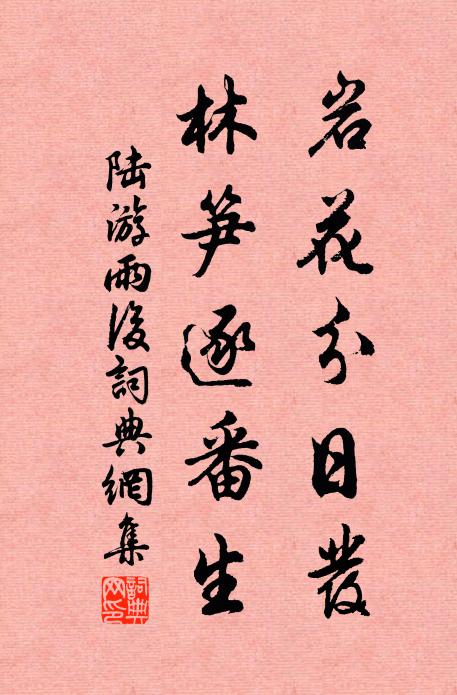 岩花分日發
林笋逐番生
陆游雨後詞典網集
詞典網印